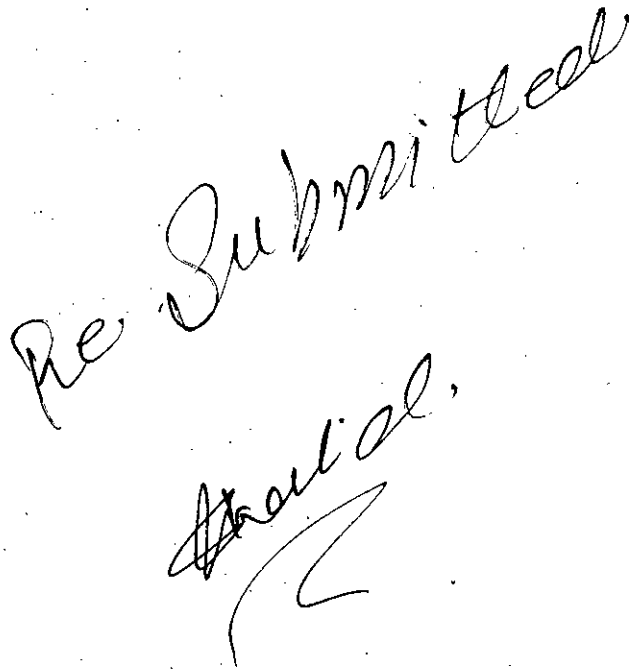 Re. Submitted.
Khalid.